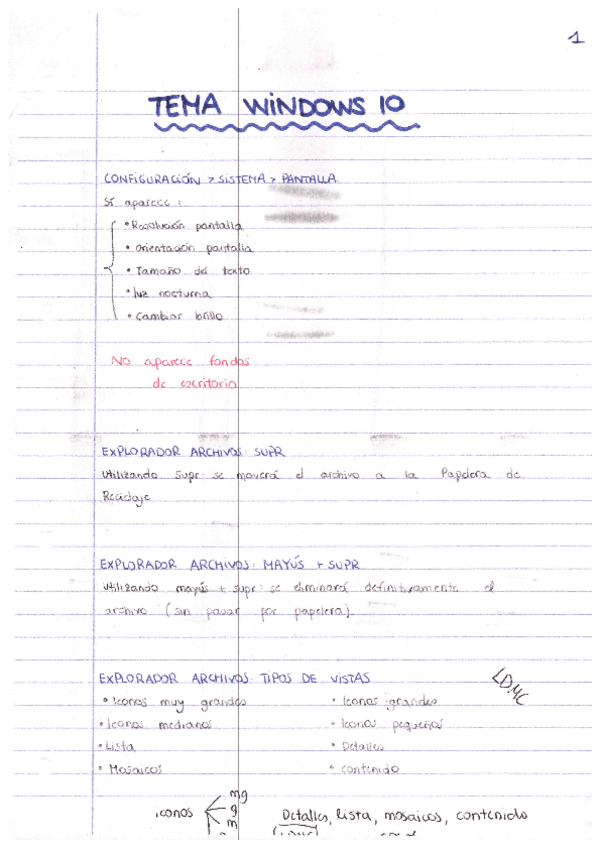 1
TEMA WINDOWS 10
CONFIGURACIÓN > SISTEMA > PANTALLA
Sí aparece :
• Resolución pantalla
• Orientación pantalla
• Tamaño del texto
• luz nocturna
• Cambiar brillo
No aparece fondos
de escritorio
EXPLORADOR ARCHIVOS: SUPR
Utilizando Supr: se moverá el archivo a la Papelera de
Reciclaje
EXPLORADOR ARCHIVOS: MAYÚS + SUPR
Utilizando mayús + supr: se eliminará definitivamente el
archivo (sin pasar por papelera).
EXPLORADOR ARCHIVOS: TIPOS DE VISTAS
LDMC
• Iconos muy grandes • Iconos grandes
• Iconos medianos • Iconos pequeños
• Lista • Detalles
• Mosaicos • contenido
mg
iconos g Detalles, lista, mosaicos, contenido
m